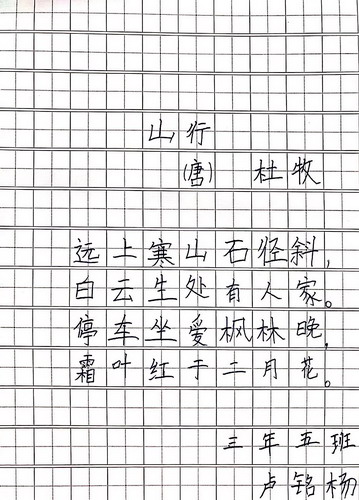 山行
(唐) 杜牧
远上寒山石径斜,
白云生处有人家。
停车坐爱枫林晚,
霜叶红于二月花。
三年五班
卢铭杨